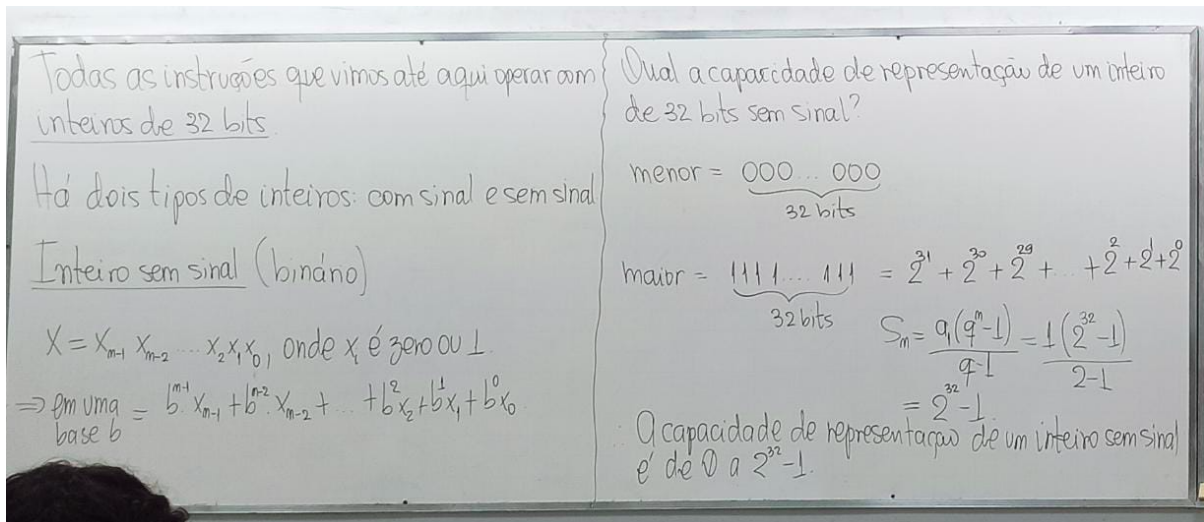 Todas as instruções que vimos até aqui operar com
inteiros de 32 bits.
Há dois tipos de inteiros: com sinal e sem sinal
Inteiro sem sinal (binário)
X = x_{m-1} x_{m-2} .... x_2 x_1 x_0, onde x_i é zero ou 1.
⇒ em uma base b = b^{m-1} x_{m-1} + b^{m-2} x_{m-2} + ... + b^2 x_2 + b^1 x_1 + b^0 x_0
Qual a capacidade de representação de um inteiro
de 32 bits sem sinal?
menor = 000... 000
32 bits
maior = 1111.... 111 = 2^{31} + 2^{30} + 2^{29} + ... + 2^2 + 2^1 + 2^0
32 bits
S_m = a_1(q^m - 1)/(q-1) = 1(2^{32} - 1)/(2-1)
= 2^{32} - 1.
∴ A capacidade de representação de um inteiro sem sinal
é de 0 a 2^{32} - 1.